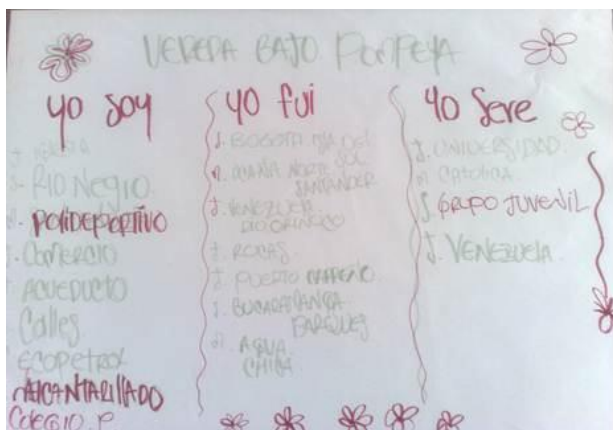 VEREDA BAJO POMPEYA
yo soy
RIO NEGRO
POLIDEPORTIVO
COMERCIO
ACUEDUCTO
Calles
ECOPETROL
ALCANTARILLADO
COLEGIO. P
yo fui
BOGOTA
OCAÑA NORTE
SANTANDER
VENEZUELA
RIO ORINOCO
ROCAS
PUERTO CARREÑO
BUCARAMANGA
PARQUES
AGUA
CHICA
yo Sere
UNIVERSIDAD
CATOLICA
GRUPO JUVENIL
VENEZUELA